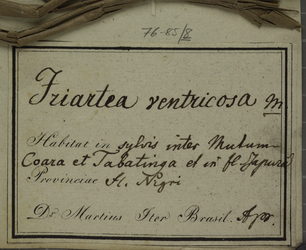 76-85/8
Iriartea ventricosa m
Habitat in sylvis inter Mutum
Coara et Tabatinga et in fl. Japura
Provinciae fl. Nigri
Dr Martius Iter Brasil. Apr.